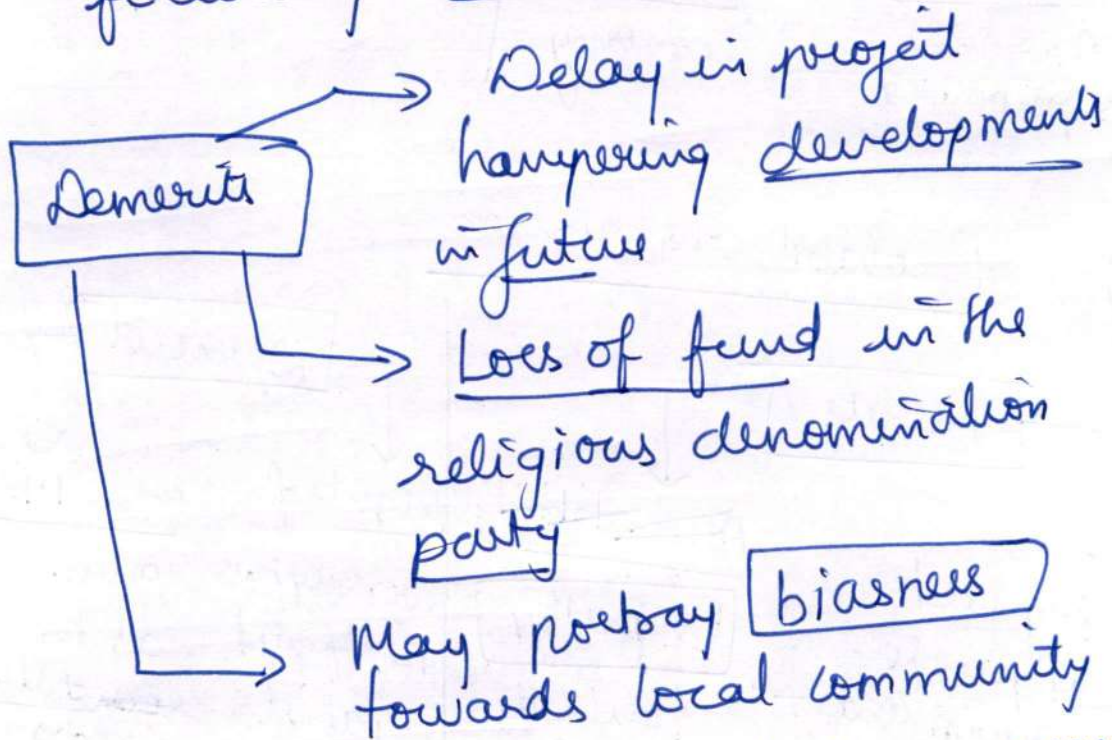 Demerits
Delay in project
hampering developments
in future
Loss of fund in the
religious denomination
party
May portray biasness
towards local community